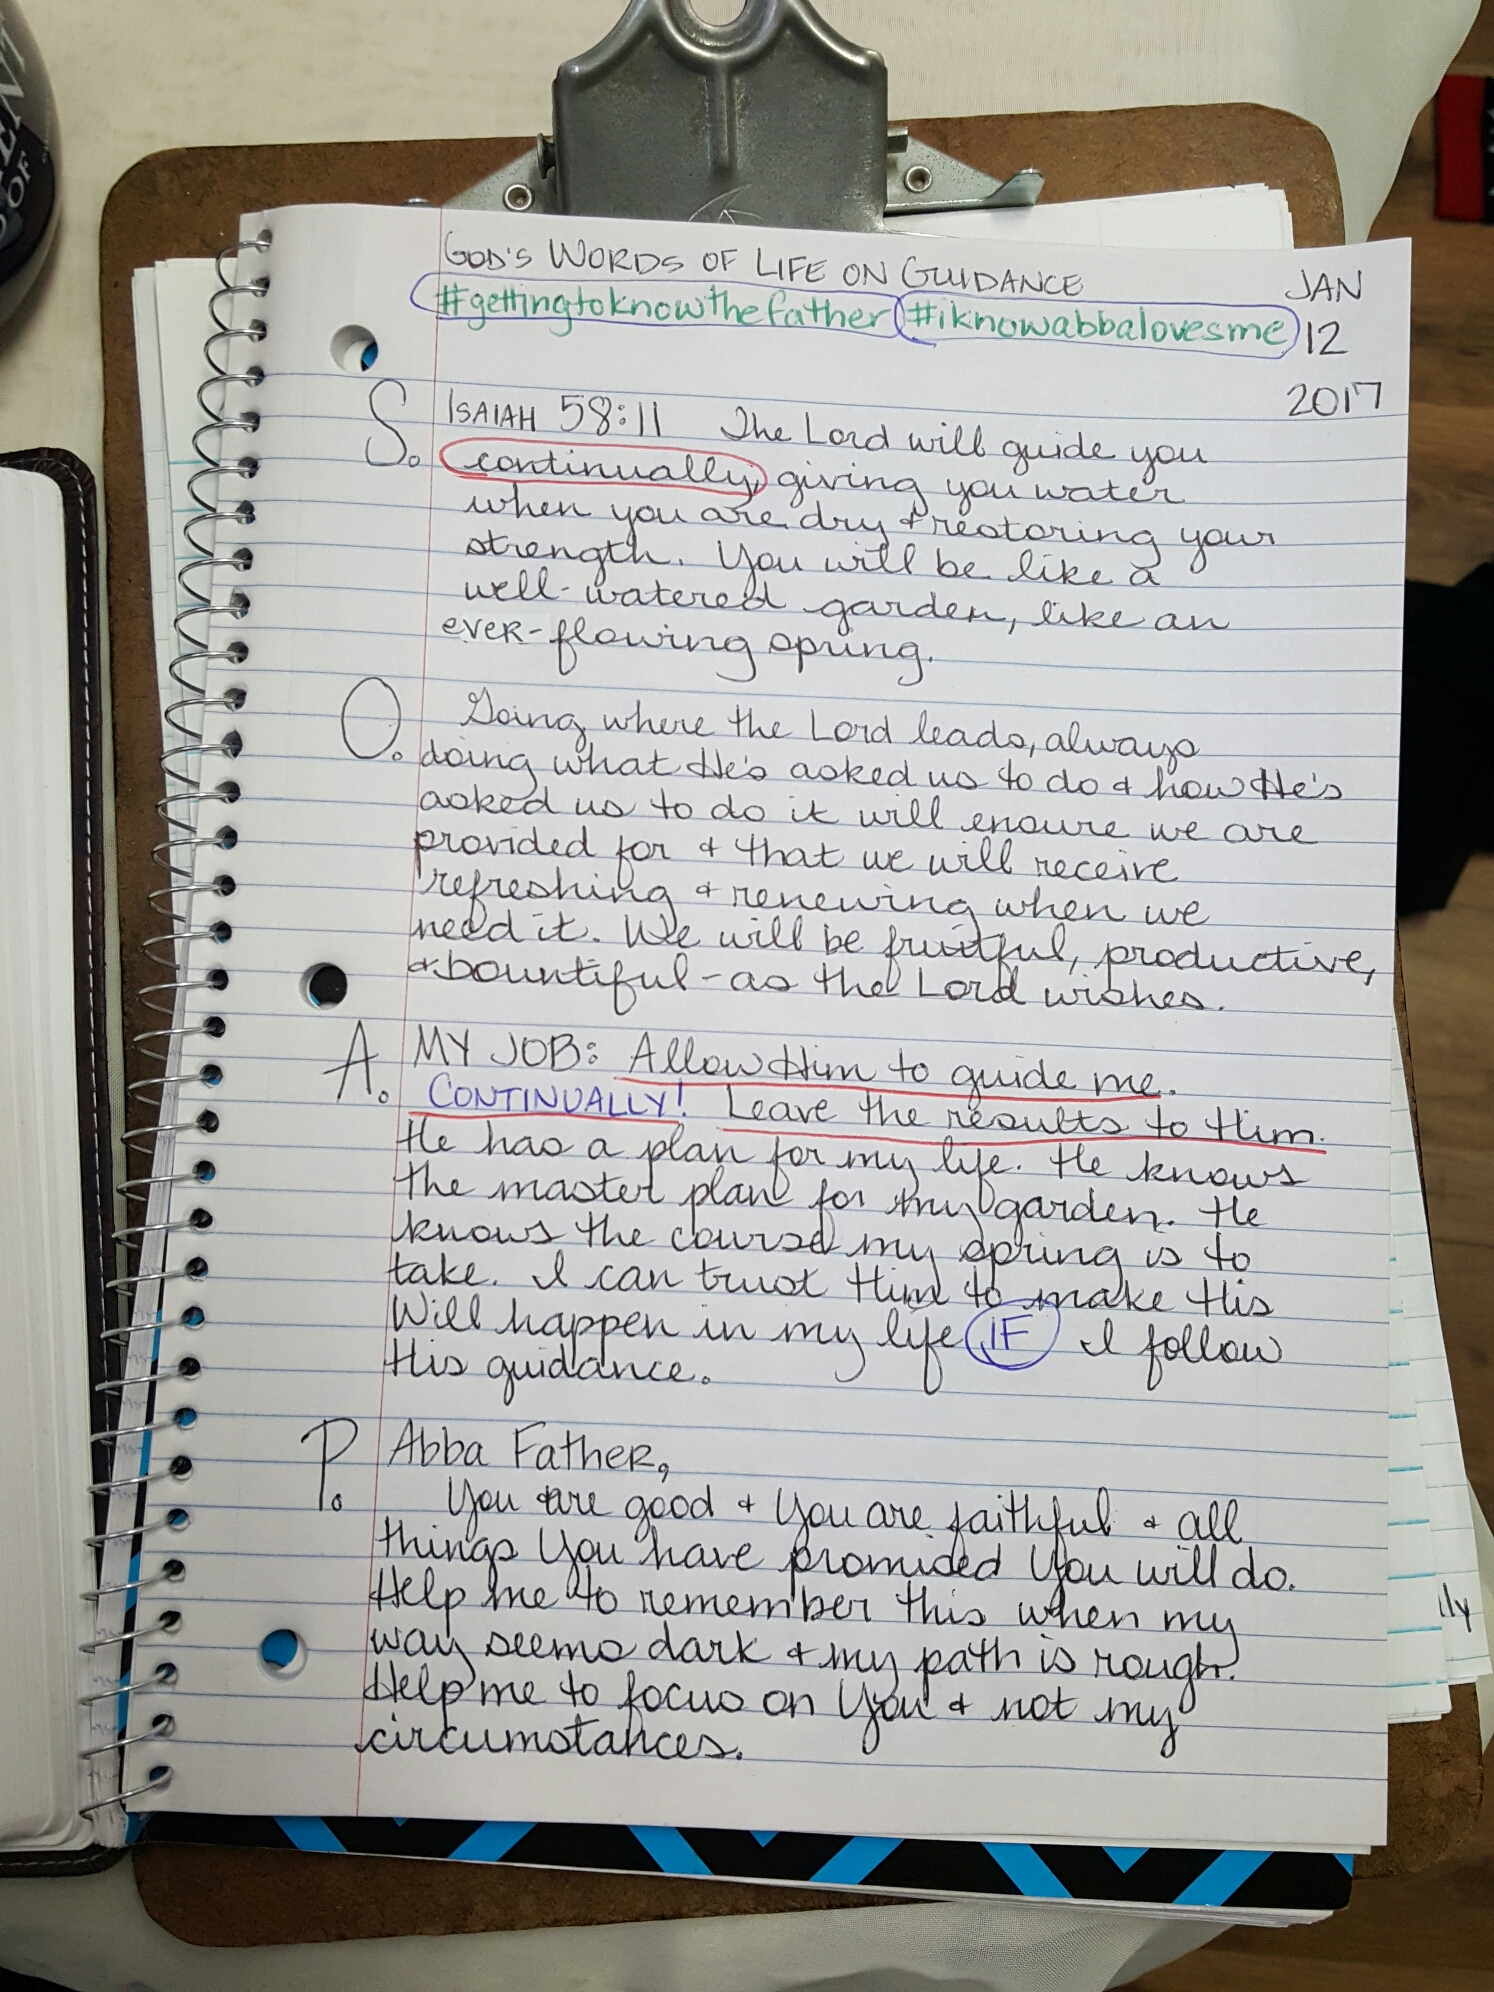 GOD'S WORDS OF LIFE ON GUIDANCE
JAN
#gettingtoknowthefather #iknowabbalovesme
12
2017
S. ISAIAH 58:11 The Lord will guide you
continually, giving you water
when you are dry & restoring your
strength. You will be like a
well-watered garden, like an
ever-flowing spring.
O. Going where the Lord leads, always
doing what He's asked us to do & how He's
asked us to do it will ensure we are
provided for & that we will receive
refreshing & renewing when we
need it. We will be fruitful, productive,
& bountiful - as the Lord wishes.
A. MY JOB: Allow Him to guide me.
CONTINUALLY! Leave the results to Him.
He has a plan for my life. He knows
the master plan for my garden. He
knows the course my spring is to
take. I can trust Him to make His
Will happen in my life IF I follow
His guidance.
P. Abba Father,
You are good & You are faithful & all
things You have promised You will do.
Help me to remember this when my
way seems dark & my path is rough.
Help me to focus on You & not my
circumstances.
lly
OF